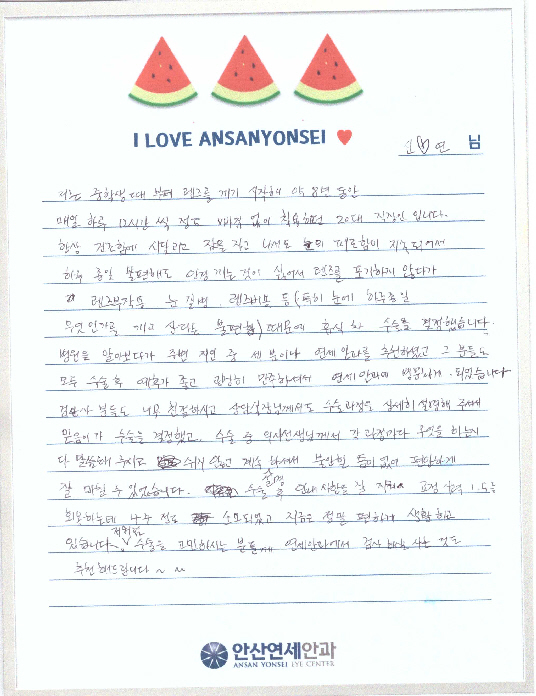 I LOVE ANSANYONSEI ♥
연 님
저는 중학생때 부터 렌즈를 끼기 시작해 약 8년 동안
매일 하루 12시간 씩 정도 빠짐 없이 착용했던 20대 직장인 입니다.
항상 건조함에 시달리고 잠을 자고 나서도 눈의 피로함이 지속되어서
하루 종일 불편해도 안경 끼는것이 싫어서 렌즈를 포기하지 않다가
렌즈부작용 눈 질병, 렌즈비용 등 (특히 눈에 하루종일
무엇인가를 끼고 산다는 불편함) 때문에 휴식 차 수술을 결정했습니다.
병원을 알아보다가 주변 지인 중 세 분이나 연세안과를 추천하셨고 그 분들도
모두 수술 후 예후가 좋고 굉장히 만족하셔서 연세안과에 방문하게 되었습니다
검사자 분들도 너무 친절하시고 상담실장님께서도 수술과정을 상세히 설명해 주셔서
믿음이가 수술을 결정했고, 수술 중 의사선생님께서 각 과정마다 무엇을 하는지
다 말씀해 주시고 쉬지 않고 계속 하셔서 불안할 틈이 없이 편안하게
잘 마칠 수 있었습니다. 수술 후 안내사항을 잘 지켜 교정 시력 1.5를
회복하는데 나누 정도 소모되었고 지금은 정말 편하게 생활하고
있습니다. 수술을 고민하시는 분들께 연세안과에서 검사 받아 보시는 것을
추천해드립니다 ~ ~
안산연세안과
ANSAN YONSEI EYE CENTER